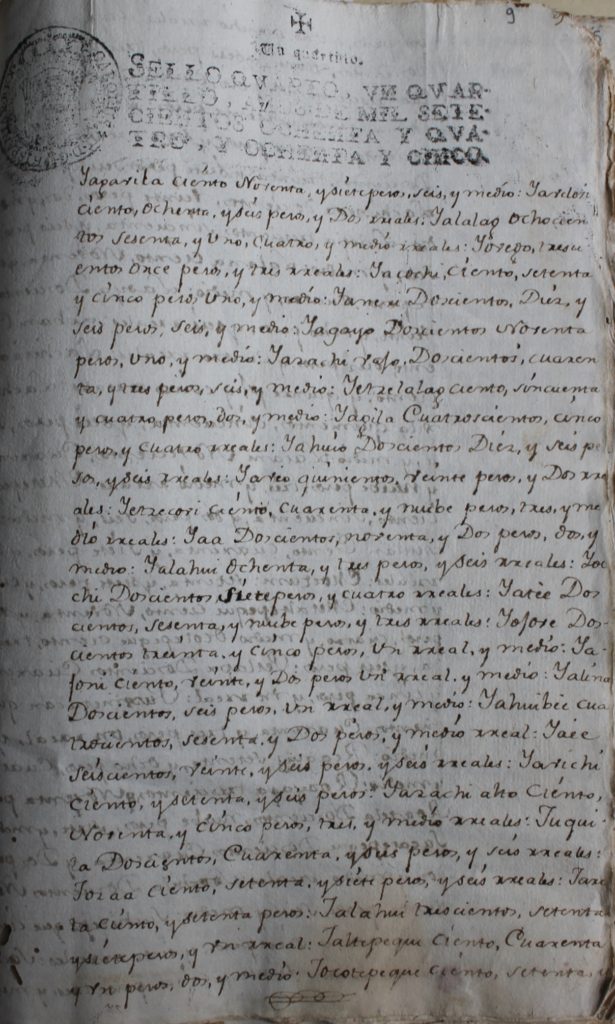 9
Un quartillo.
SELLO QVARTO, VN QVAR-
TILLO, AÑOS DE MIL SETE-
CIENTOS OCHENTA Y QVA-
TRO, Y OCHENTA Y CINCO.
Yaparila Ciento Nosenta, y siete pesos, seis, y medio:
Ciento, Ochenta, y seis pesos, y Dos rreales: Yalalag Ochocien
tos sesenta, y Uno, Cuatro, y medio rreales: Yovego, tresci
entos Once pesos, y tres rreales: Yacochi, Ciento, setenta
y Cinco pesos, Uno, y medio: Doscientos, Diez, y
seis pesos, seis, y medio: Yagayo Doscientos Nosenta
pesos, Uno, y medio: Yarachi vajo, Doscientos, cuaren
ta, y tres pesos, seis, y medio: Yetzelalag Ciento, sincuenta
y cuatro pesos, dos, y medio: Yagila Cuatroscientos, Cinco
pesos, y Cuatro rreales: Yahuio Doscientos Diez, y seis pe
sos, y seis rreales: Yareo quinientos, veinte pesos, y Dos rre
ales: Yetzecovi Ciento, Cuarenta, y nuebe pesos, tres, y me
dio rreales: Yaa Doscientos, noventa, y Dos pesos, dos, y
medio: Yalahui Ochenta, y tres pesos, y seis rreales: Yoc
chi Doscientos siete pesos, y cuatro rreales: Yatèe Dos
cientos, sesenta, y nuebe pesos, y tres rreales: Yojove Dos
cientos treinta, y Cinco pesos, Un real, y medio: Ya
joni Ciento, veinte, y Dos pesos Un real, y medio: Yalina
Doscientos, seis pesos, Un rreal, y medio: Yahuibèe cua
trocientos, sesenta, y Dos pesos, y medio rreal: Yaèe
seiscientos, veinte, y seis pesos, y seis rreales: Yavichi
Ciento, y setenta, y seis pesos: Yarachi alto Ciento,
Nosenta, y Cinco pesos, tres, y medio rreales: Yuqui
la Doscientos, Cuarenta, y seis pesos, y seis rreales:
Yoxaa Ciento, setenta, y siete pesos, y seis rreales:
ta Ciento, y setenta pesos: Yalahui trescientos, setenta
y siete pesos, y Un rreal: Yaltepeque Ciento, Cuarenta
y Un pesos, dos, y medio: Jocotepeque Ciento, setenta, y